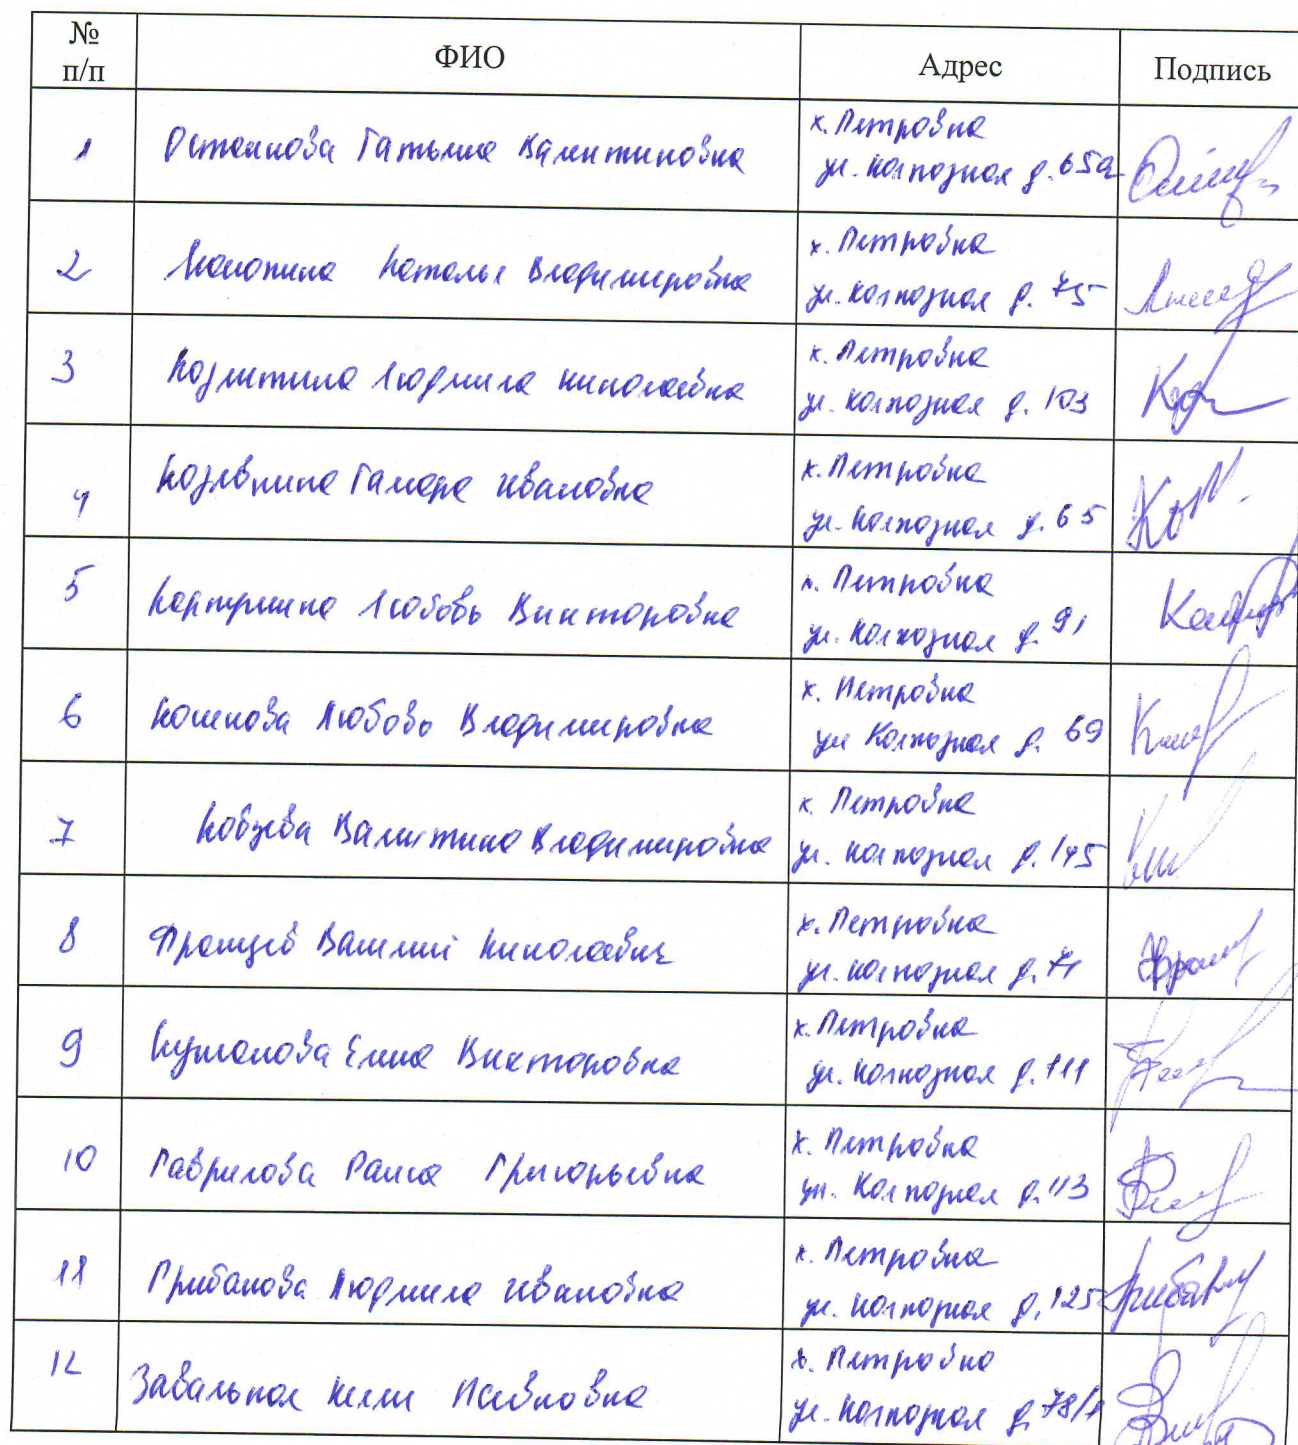 №
п/п
ФИО
Адрес
Подпись
1
Татьяна Валентиновна
х. Петровка
ул. Колхозная д. 65а
2
Наталья Владимировна
х. Петровка
ул. Колхозная д. 75
3
Людмила Николаевна
х. Петровка
ул. Колхозная д. 103
4
Тамара Ивановна
х. Петровка
ул. Колхозная д. 65
5
Любовь Викторовна
х. Петровка
ул. Колхозная д. 91
6
Любовь Владимировна
х. Петровка
ул Колхозная д. 69
7
Кобзева Валентина Владимировна
х. Петровка
ул. Колхозная д. 145
8
Василий Николаевич
х. Петровка
ул. Колхозная д. 71
9
Елена Викторовна
х. Петровка
ул. Колхозная д. 111
10
Гаврилова Раиса Григорьевна
х. Петровка
ул. Колхозная д. 113
11
Грибанова Людмила Ивановна
х. Петровка
ул. Колхозная д. 125
12
Завальная Нелли Павловна
х. Петровка
ул. Колхозная д. 78/1